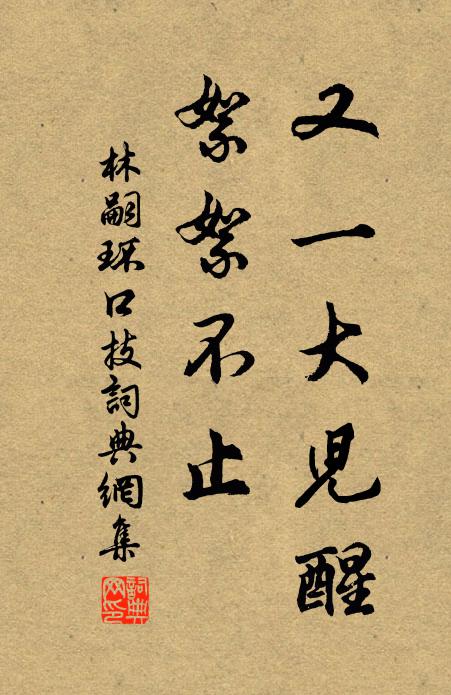 又一大兒醒
絮絮不止
林嗣環口技詞典網集
詞典网印